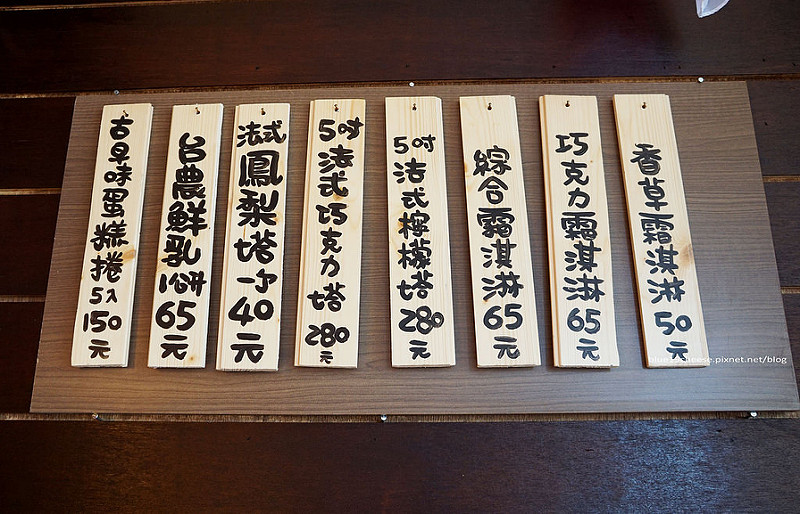 香草霜淇淋50元
巧克力霜淇淋65元
綜合霜淇淋65元
5吋法式檸檬塔280元
5吋法式巧克力塔280元
法式鳳梨塔一個40元
台農鮮乳1公升65元
古早味蛋糕捲5入150元
pixnet.net/blog